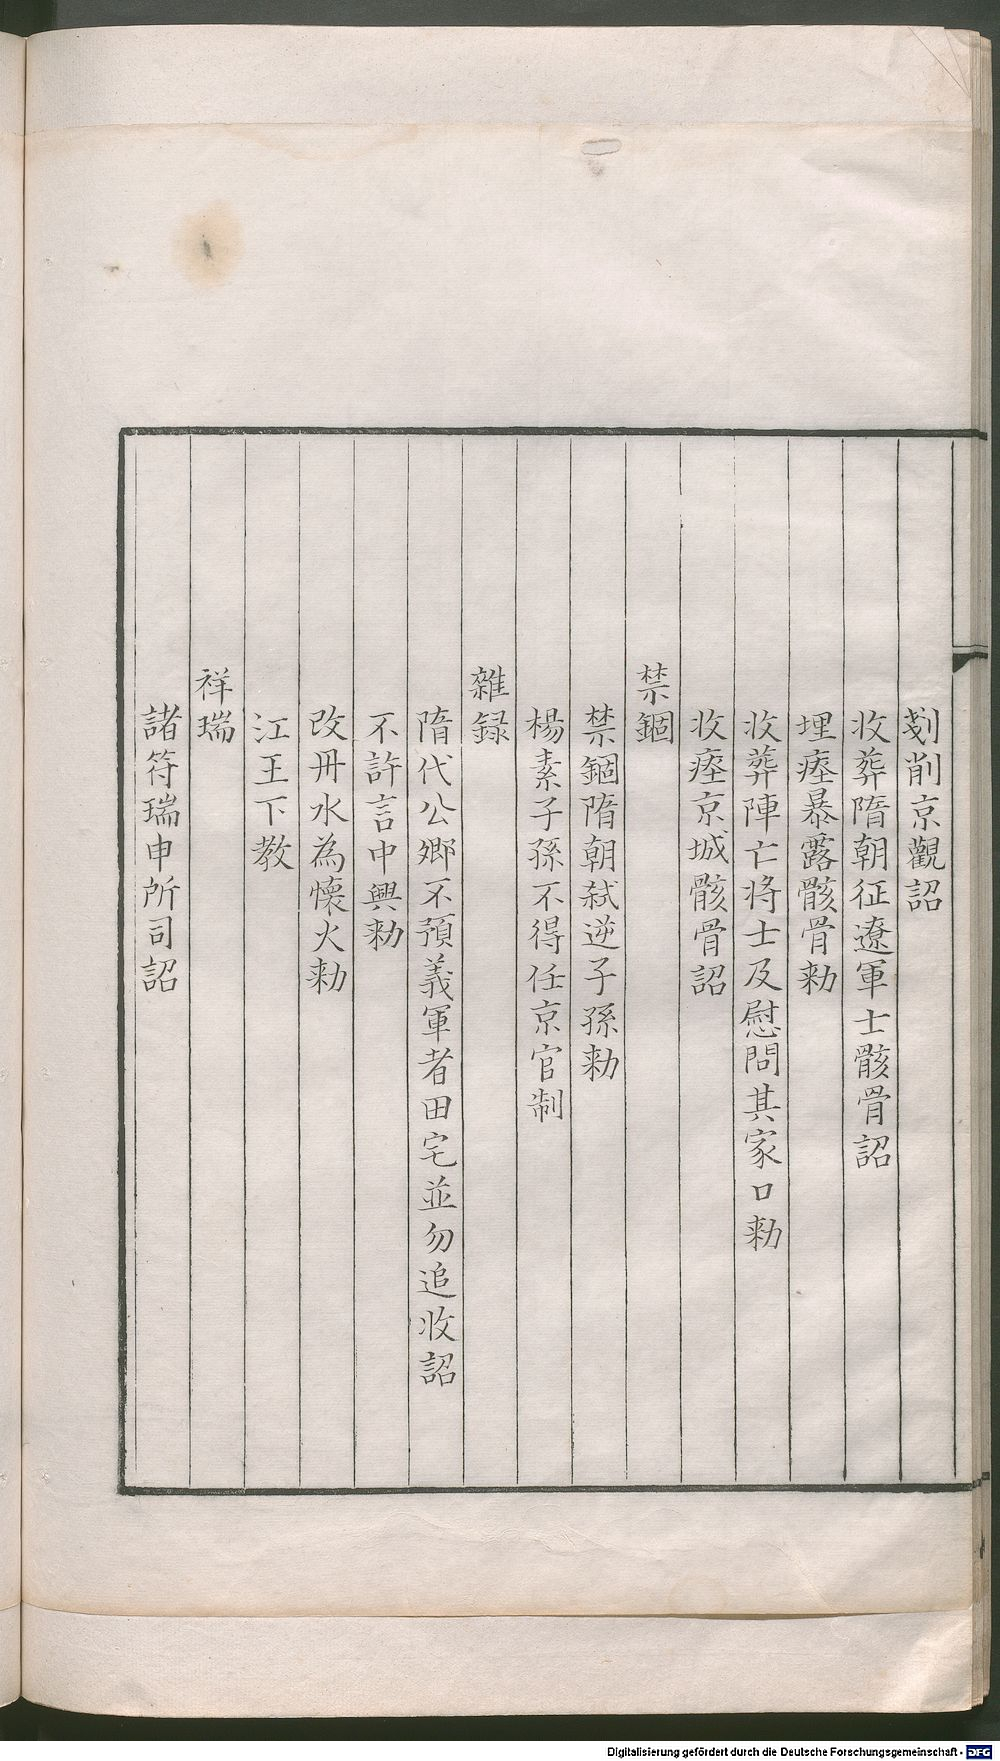 剗削京觀詔
收葬隋朝征遼軍士骸骨詔
埋瘞暴露骸骨勑
收葬陣亡将士及慰問其家口勑
收瘞京城骸骨詔
禁錮
禁錮隋朝弑逆子孫勑
楊素子孫不得任京官制
雜録
隋代公卿不預義軍者田宅並勿追收詔
不許言中興勑
改丹水為懷火勑
江王下教
祥瑞
諸符瑞申所司詔
Digitalisierung gefördert durch die Deutsche Forschungsgemeinschaft - DFG